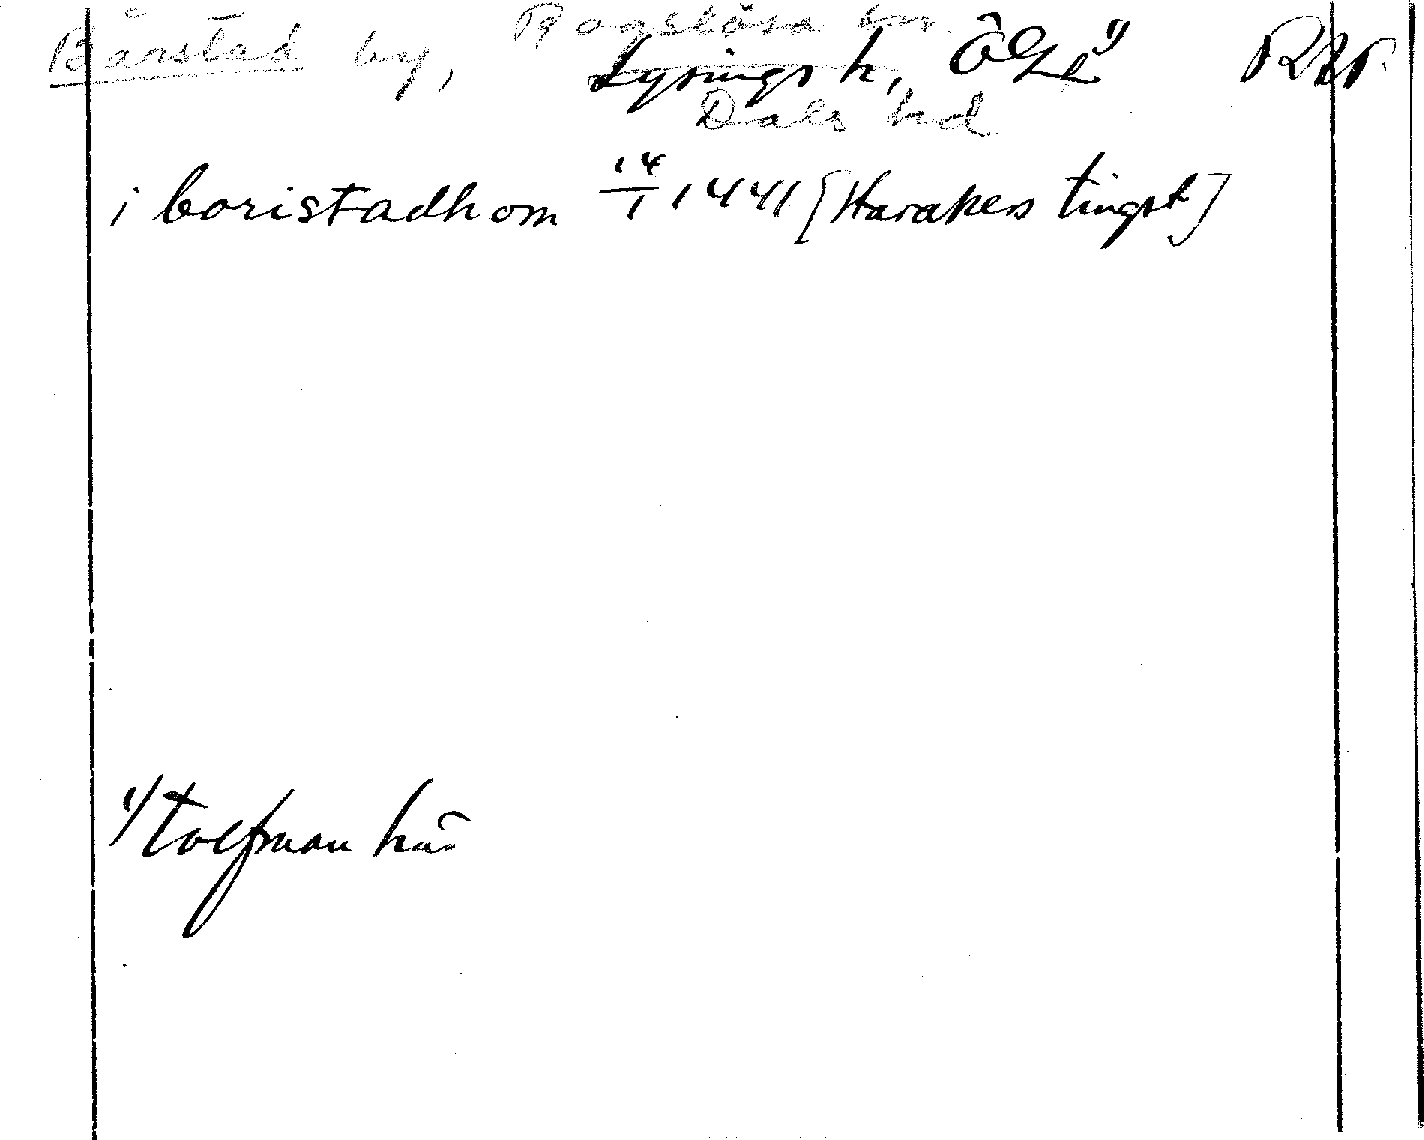 Bårstad by, Rogslösa sn.
Lysings h, ÖGL 1) RAP
Dals hd
i boristadhom 14/1 1441 [Harakers tingst]
1) tolfman här